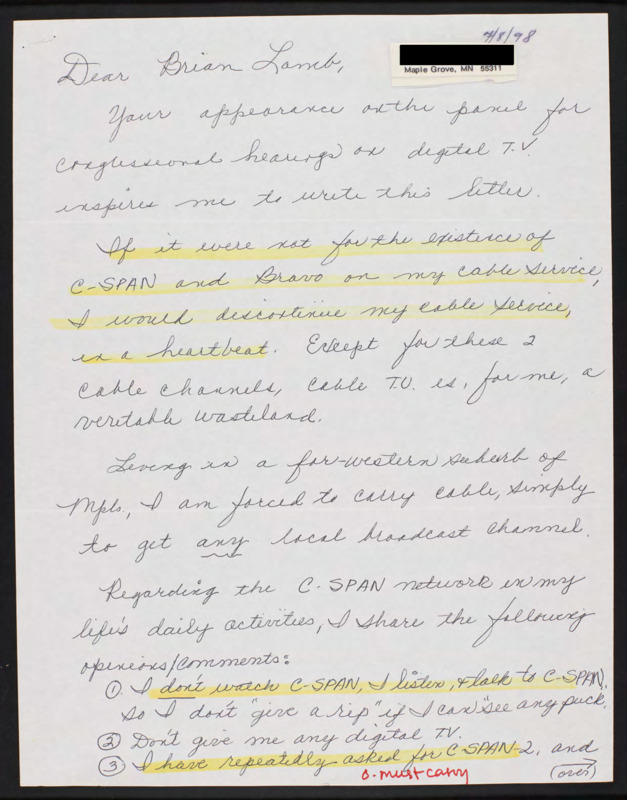 4/8/98
Maple Grove, MN 55311
Dear Brian Lamb,
Your appearance on the panel for
congressional hearings on digital T.V.
inspires me to write this letter.
If it were not for the existence of
C-SPAN and Bravo on my cable service,
I would discontinue my cable service,
in a heartbeat. Except for these 2
cable channels, cable T.V. is, for me, a
veritable wasteland.
Living in a far-western suburb of
Mpls., I am forced to carry cable, simply
to get any local broadcast channel.
Regarding the C-SPAN network in my
life's daily activities, I share the following
opinions/comments:
① I don't watch C-SPAN, I listen, & talk to C-SPAN.
So I don't "give a rip" if I can "see any puck.
② Don't give me any digital TV.
③ I have repeatedly asked for C-SPAN-2, and
must carry
(over)